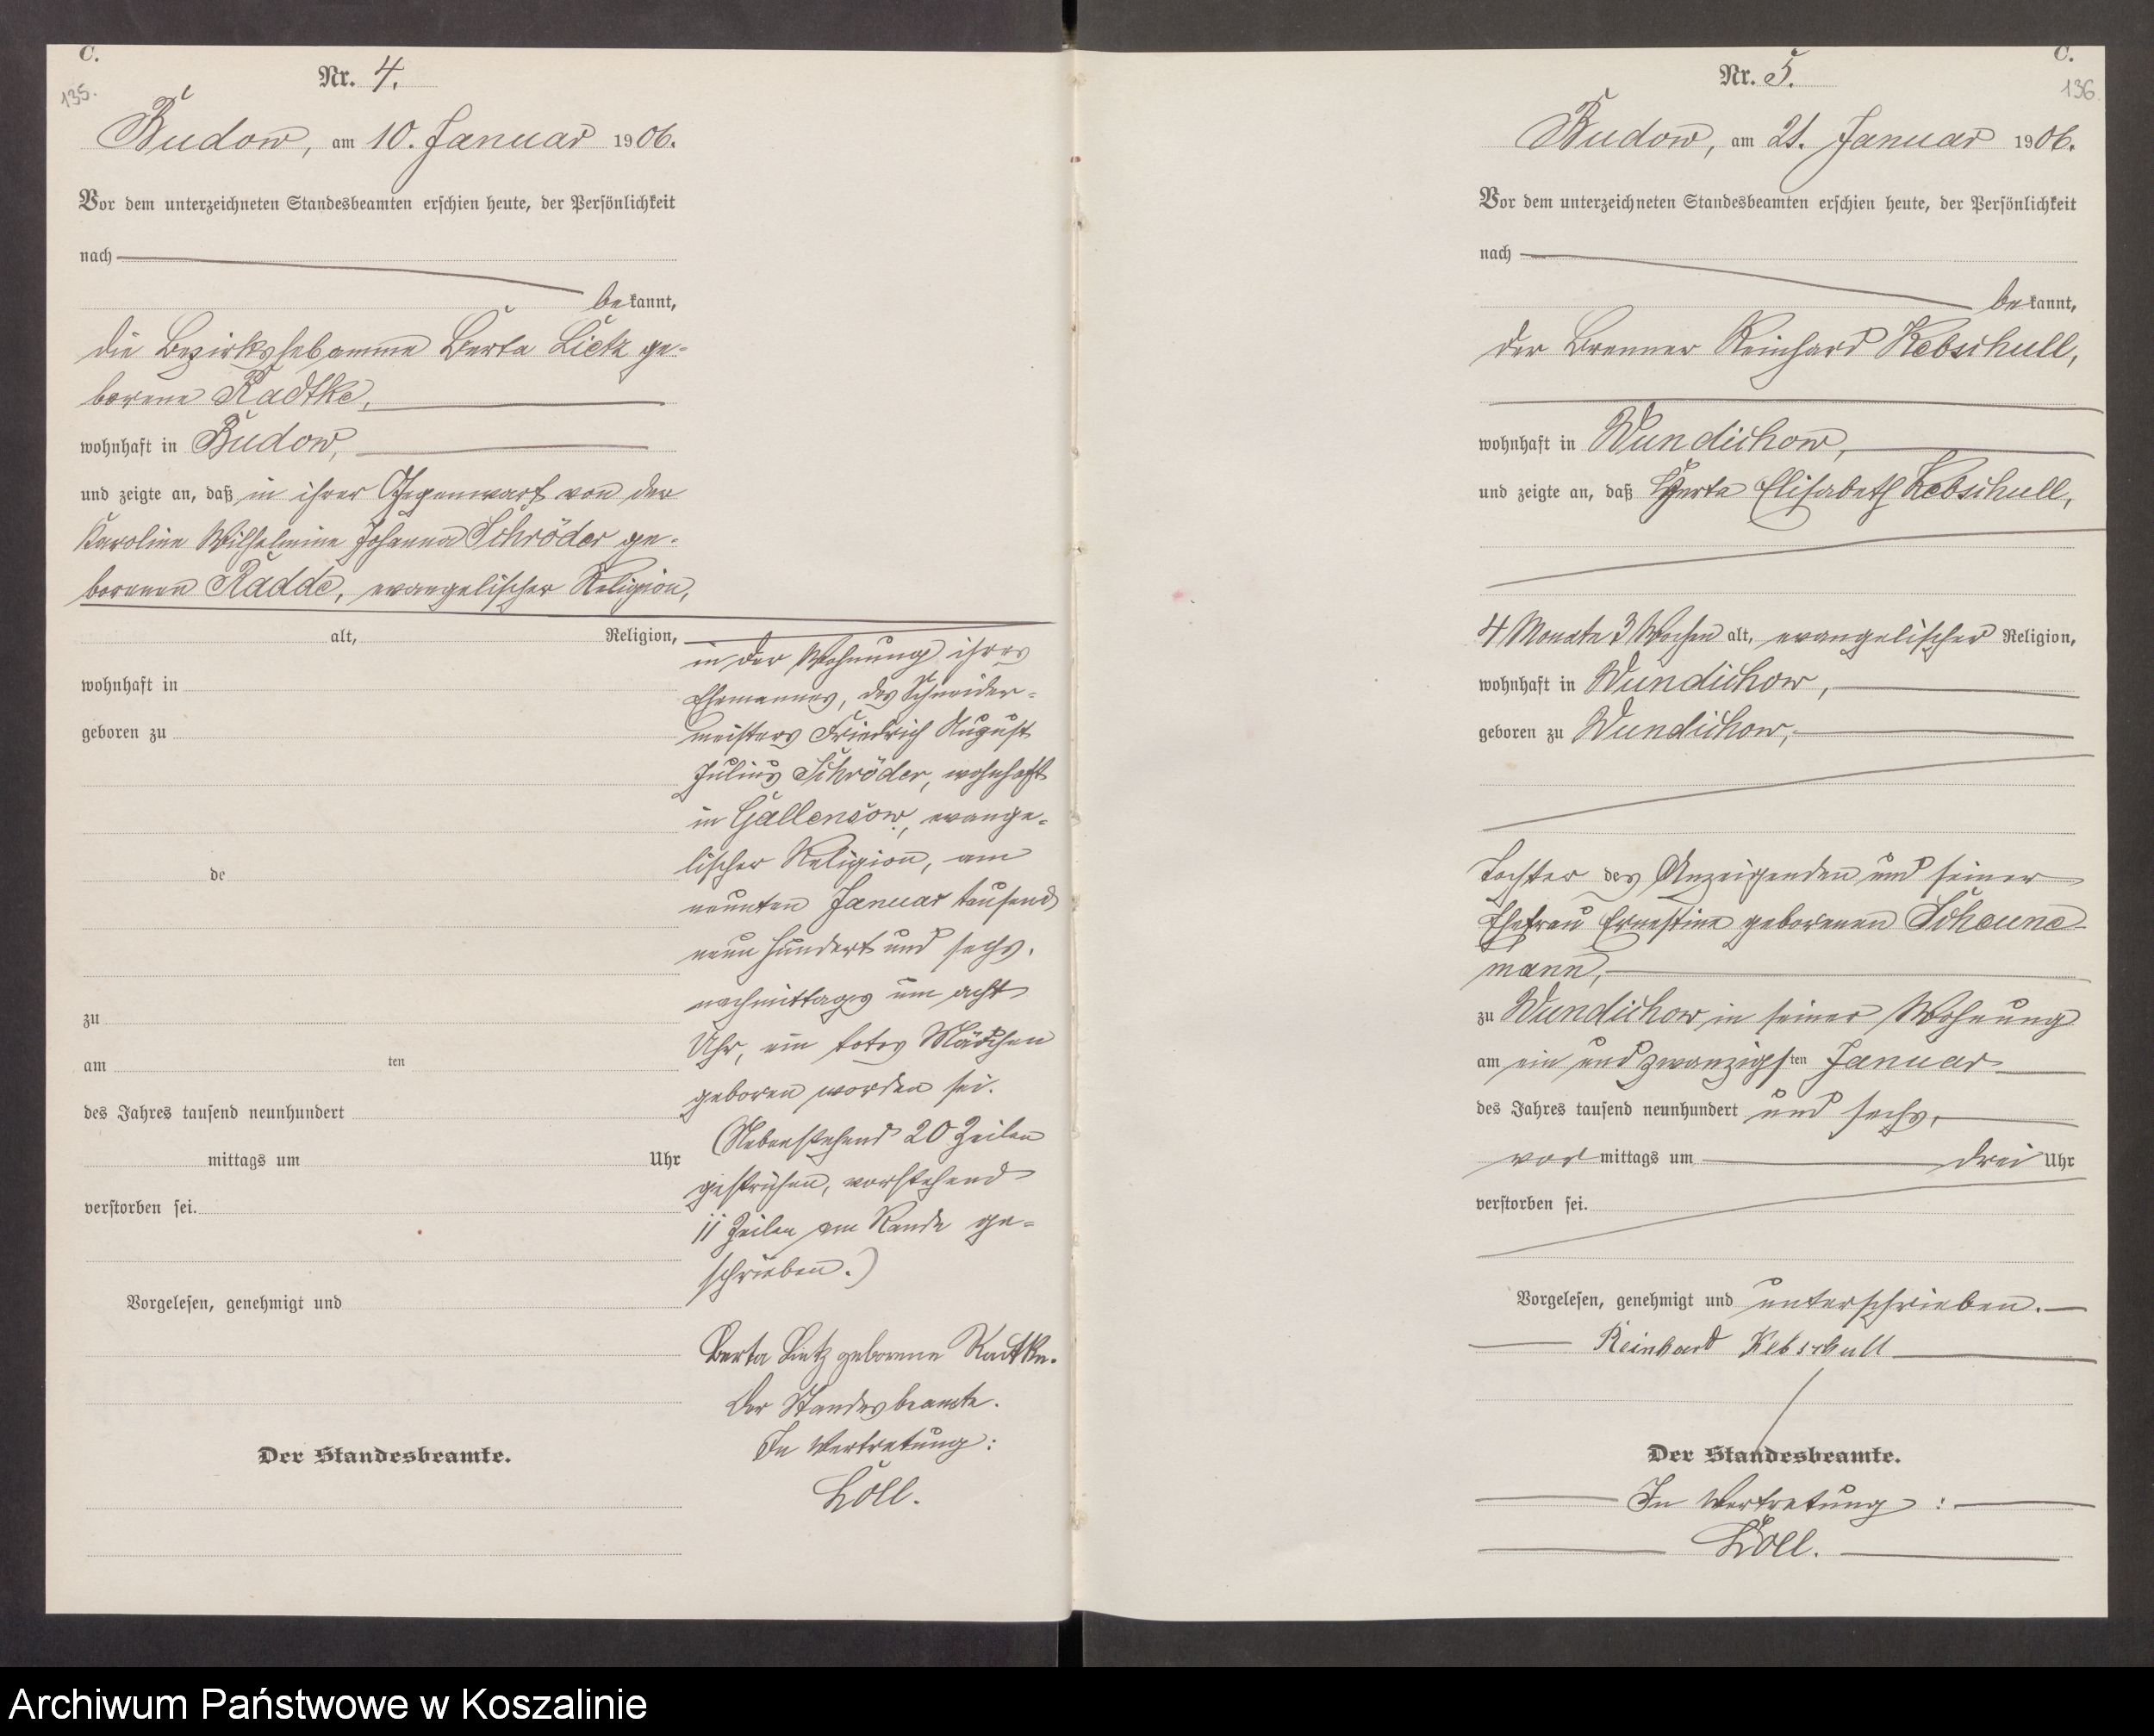 C.
135.
Nr. 4.
Budow, am 10. Januar 1906.
Vor dem unterzeichneten Standesbeamten erschien heute, der Persönlichkeit
nach
bekannt,
die Bezirkshebamme Berta Lietz ge-
borene Radtke,
wohnhaft in Budow,
und zeigte an, daß in ihrer Gegenwart von der
Karoline Wilhelmine Johanna Schröder ge-
borenen Radde, evangelischer Religion,
alt, Religion,
wohnhaft in
geboren zu
de
zu
am ten
des Jahres tausend neunhundert
mittags um Uhr
verstorben sei.
Vorgelesen, genehmigt und
Der Standesbeamte.
in der Wohnung ihres
Ehemannes, des Schneider-
meisters Friedrich August
Julius Schröder, wohnhaft
in Gallensow, evange-
lischer Religion, am
neunten Januar tausend
neun hundert und sechs.
nachmittags um acht
Uhr, ein totes Mädchen
geboren worden sei.
(Nebenstehend 20 Zeilen
gestrichen, vorstehend
11 Zeilen am Rande ge-
schrieben.)
Berta Lietz geborene Radtke.
Der Standesbeamte.
In Vertretung:
Löll.
C.
136.
Nr. 5.
Budow, am 21. Januar 1906.
Vor dem unterzeichneten Standesbeamten erschien heute, der Persönlichkeit
nach
bekannt,
der Brenner Reinhard Kebschull,
wohnhaft in Wundichow,
und zeigte an, daß Herta Elisabeth Kebschull,
4 Monate 3 Wochen alt, evangelischer Religion,
wohnhaft in Wundichow,
geboren zu Wundichow,
Tochter des Anzeigenden und seiner
Ehefrau Ernestine geborenen Scheune-
mann,
zu Wundichow in seiner Wohnung
am ein und zwanzigsten Januar
des Jahres tausend neunhundert und sechs,
vor mittags um drei Uhr
verstorben sei.
Vorgelesen, genehmigt und unterschrieben.
Reinhard Kebschull
Der Standesbeamte.
In Vertretung:
Löll.
Archiwum Państwowe w Koszalinie